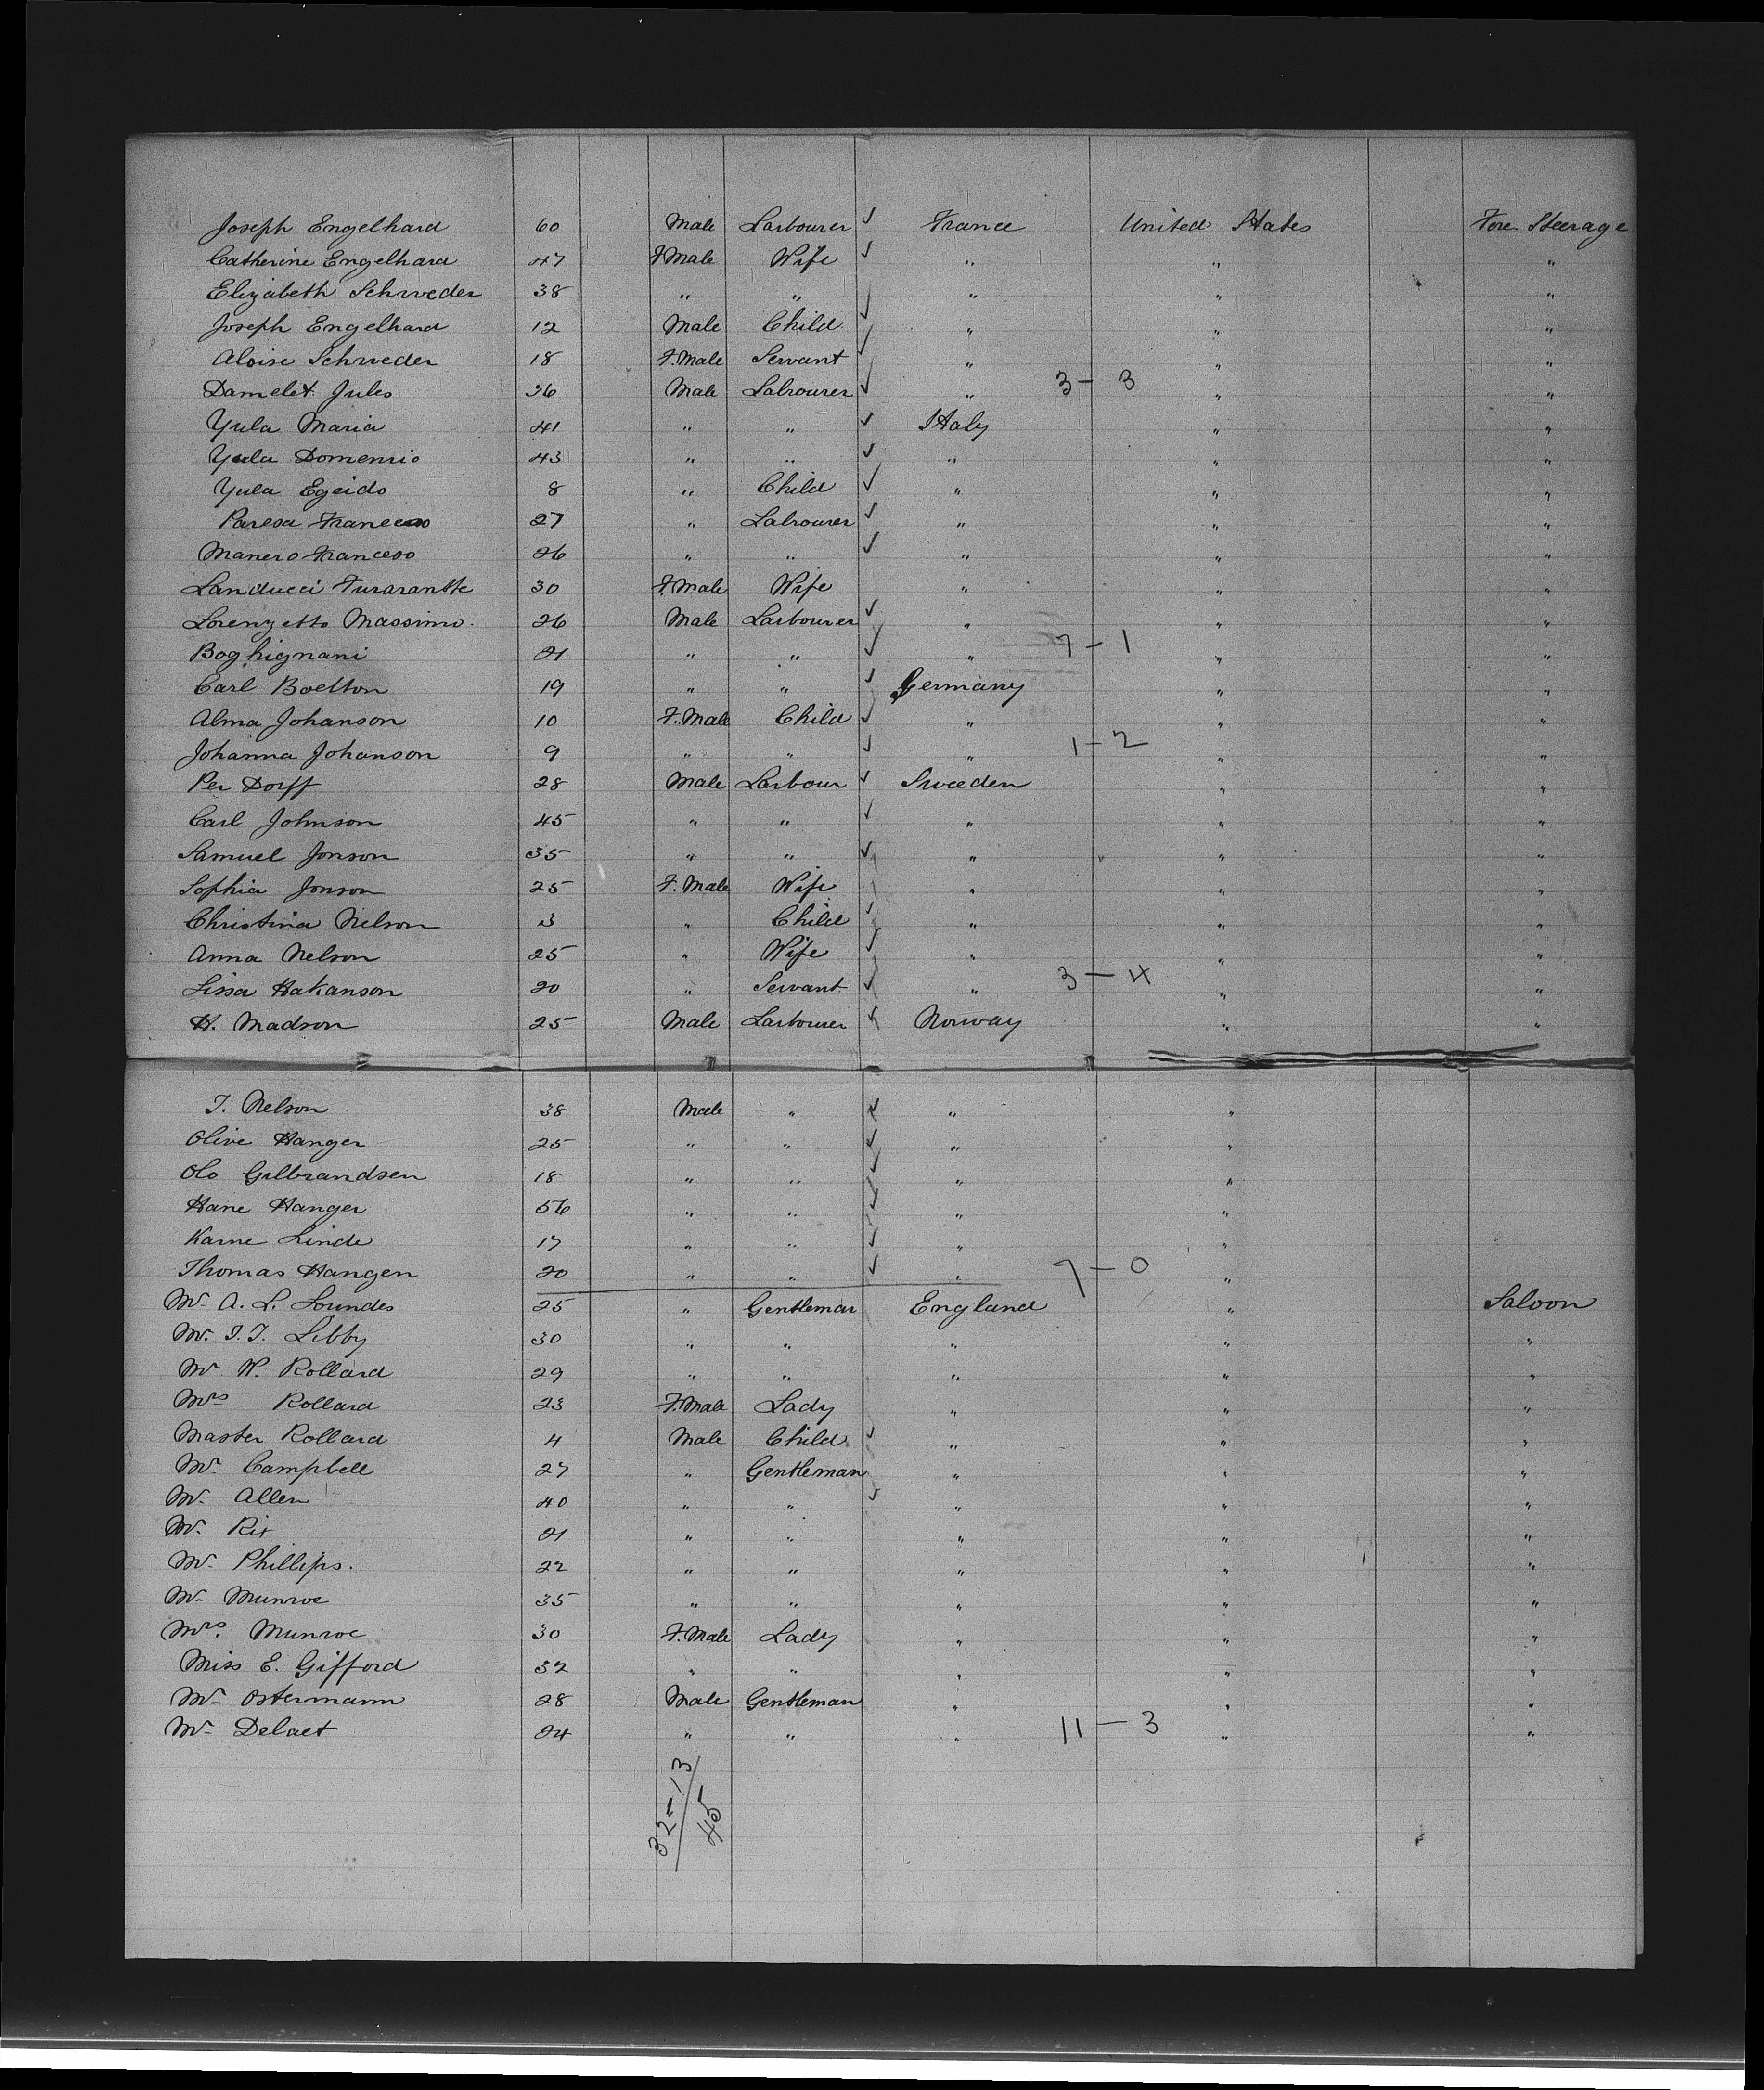 Joseph Engelhard 60 Male Larbourer ✓ France United States Fore Steerage
Catherine Engelhard 47 F Male Wife ✓ " " "
Elizabeth Schrveder 38 " " ✓ " " "
Joseph Engelhard 12 Male Child ✓ " " "
Aloise Schrveder 18 F. Male Servant ✓ " " "
Damelet Jules 36 Male Labourer ✓ " 3 - 3 " "
Yula Maria 41 " " ✓ Italy " "
Yula Domenrio 43 " " ✓ " " "
Yula Egeido 8 " Child ✓ " " "
Paresa 27 " Labourer ✓ " " "
Manero Franceso 26 " " ✓ " " "
Landucci 30 F. Male Wife " " "
Lorenzetto Massimo. 26 Male Larbourer ✓ " " "
Boghignani 21 " " ✓ " 7 - 1 " "
Carl Boelton 19 " " ✓ Germany " "
Alma Johanson 10 F. Male Child ✓ " " "
Johanna Johanson 9 " " ✓ " 1 - 2 " "
Per Dorff 28 Male Larbour ✓ Sweeden " "
Carl Johnson 45 " " ✓ " " "
Samuel Jonson 35 " " ✓ " " "
Sophia Jonson 25 F. Male Wife " " "
Christina Nelson 3 " Child ✓ " " "
Anna Nelson 25 " Wife ✓ " " "
Lissa Hakanson 20 " Servant ✓ " 3 - 4 " "
H. Madson 25 Male Larbourer ✓ Norway " "
T. Nelson 38 Male " ✓ " "
Olive Hanger 25 " " ✓ " "
Olo Gulbrandsen 18 " " ✓ " "
Hane Hanger 56 " " ✓ " "
Karne Linde 17 " " ✓ " "
Thomas Hangen 20 " " ✓ " 7 - 0 "
Mr. A. L. Loundes 25 " Gentleman England " Saloon
Mr. I. T. Libby 30 " " " " "
Mr W. Rollard 29 " " " " "
Mrs Rollard 23 F. Male Lady " " "
Master Rollard 4 Male Child ✓ " " "
Mr. Campbell 27 " Gentleman " " "
Mr. Allen 40 " " ✓ " " "
Mr. Rix 21 " " " " "
Mr. Phillips. 22 " " " " "
Mr. Munroe 35 " " " " "
Mrs. Munroe 30 F. Male Lady " " "
Miss E. Gifford 32 " " " " "
Mr. Ostermann 28 Male Gentleman " " "
Mr. Delaet 24 " " " 11 - 3 " "
32 - 13
45